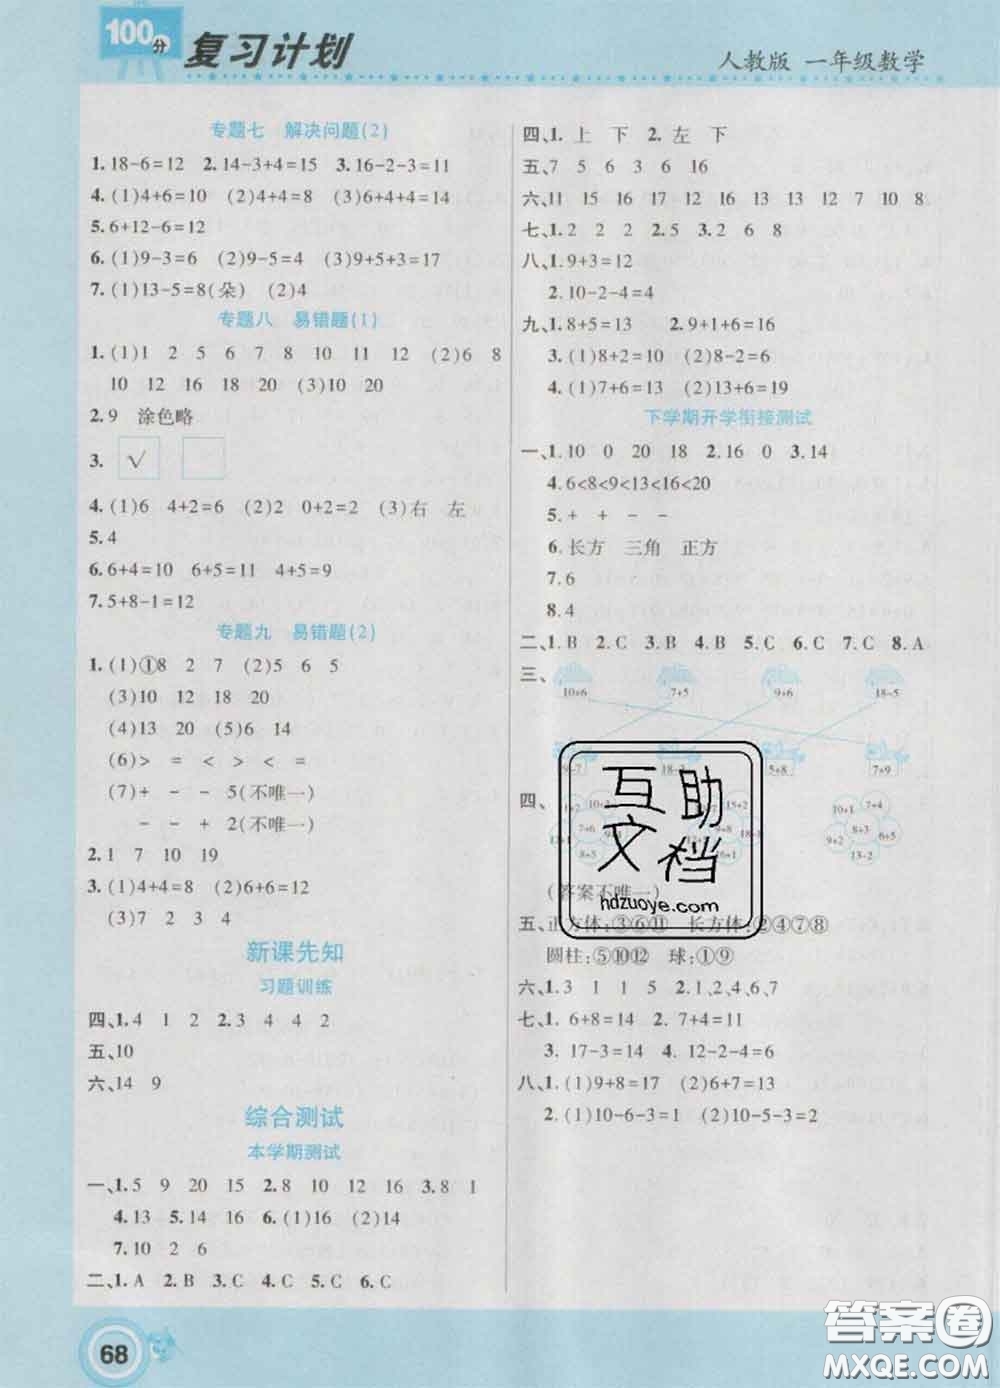 100分 复习计划
人教版 一年级数学
专题七 解决问题(2)
1. 18-6=12 2. 14-3+4=15 3. 16-2-3=11
4. (1)4+6=10 (2)4+4=8 (3)6+4+4=14
5. 6+12-6=12
6. (1)9-3=6 (2)9-5=4 (3)9+5+3=17
7. (1)13-5=8(朵) (2)4
专题八 易错题(1)
1. (1)1 2 5 6 7 8 10 11 12 (2)6 8
10 12 16 18 20 (3)10 20
2. 9 涂色略
3. √
4. (1)6 4+2=6 (2)2 0+2=2 (3)右 左
5. 4
6. 6+4=10 6+5=11 4+5=9
7. 5+8-1=12
专题九 易错题(2)
1. (1)①8 2 7 (2)5 6 5
(3)10 12 18 20
(4)13 20 (5)6 14
(6)> = < > < =
(7)+ - - 5(不唯一)
- - + 2(不唯一)
2. 1 7 10 19
3. (1)4+4=8 (2)6+6=12
(3)7 2 3 4
新课先知
习题训练
四、1. 4 1 2 2. 3 4 4 2
五、10
六、14 9
综合测试
本学期测试
一、1. 5 9 20 15 2. 8 10 12 16 3. 8 1
4. 13 5. 14 16 6. (1)16 (2)14
7. 10 2 6
二、1. A 2. B 3. C 4. C 5. C 6. C
68
四、1. 上 下 2. 左 下
五、7 5 6 3 6 16
六、11 15 16 17 12 16 13 12 7 10 8
七、1. 2 2 2 2. 5 3. 2 6 8
八、1. 9+3=12
2. 10-2-4=4
九、1. 8+5=13 2. 9+1+6=16
3. (1)8+2=10 (2)8-2=6
4. (1)7+6=13 (2)13+6=19
下学期开学衔接测试
一、1. 10 0 20 18 2. 16 0 3. 14
4. 6<8<9<13<16<20
5. + + - -
6. 长方 三角 正方
7. 6
8. 4
二、1. B 2. C 3. B 4. B 5. C 6. C 7. C 8. A
三、
10+6 7+5 9+6 18-5
9-7 18-3 5+8 7+9
四、
10+2 15+2 10+1 7+4
7+6 9+8 9+2 8+3 6+5
8+5 16+1 13-2
(答案不唯一)
五、正方体:③⑥⑪ 长方体:②④⑦⑧
圆柱:⑤⑩⑫ 球:①⑨
六、1. 3 1 1 5 2. 1、2、4、6、7
七、1. 6+8=14 2. 7+4=11
3. 17-3=14 4. 12-2-4=6
八、1. (1)9+8=17 (2)6+7=13
2. (1)10-6-3=1 (2)10-5-3=2
互助
文档
hdzuoye.com
答案圈
MXQE.COM